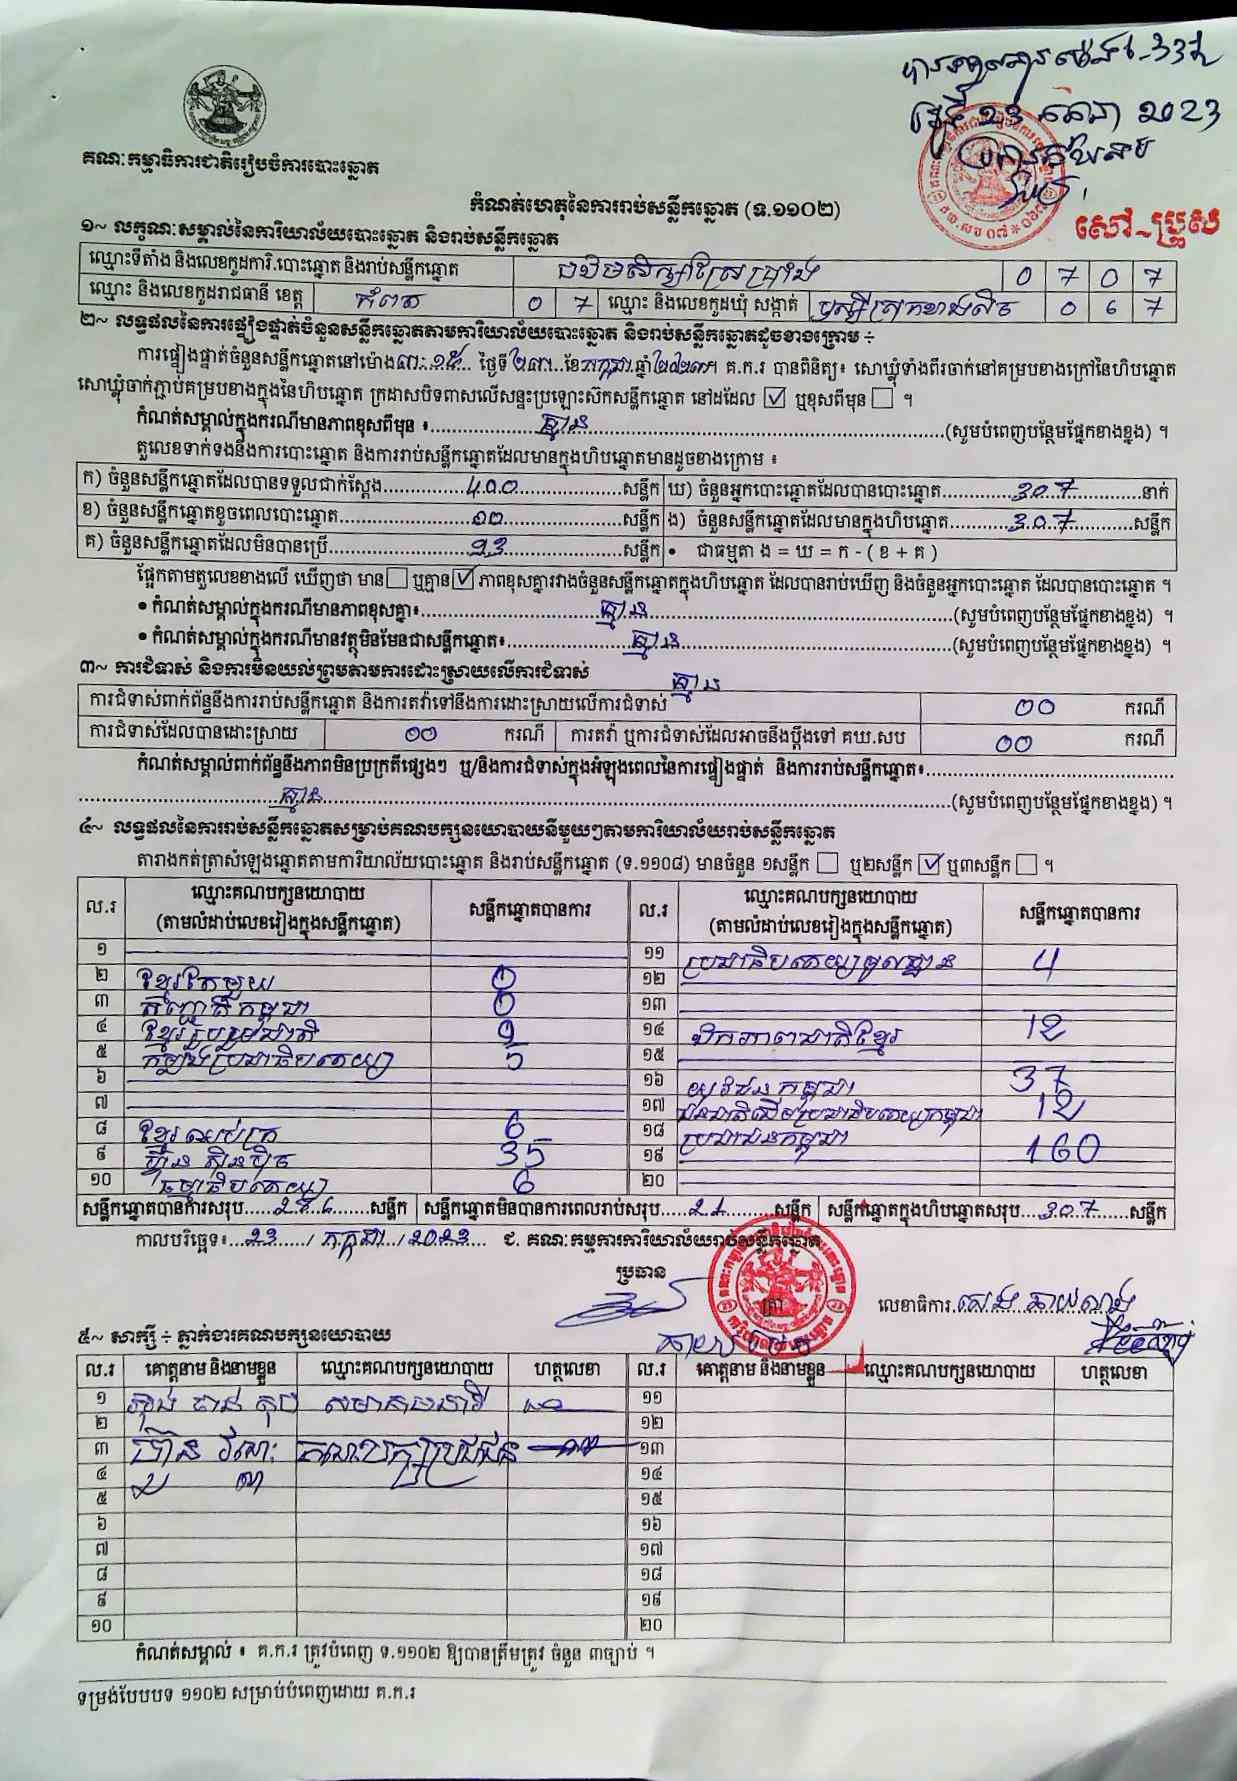 គណៈកម្មាធិការជាតិរៀបចំការបោះឆ្នោត
2023
សៅ~ប្រុស
កំណត់ហេតុនៃការរាប់សន្លឹកឆ្នោត (ទ.១១០២)
១~ លក្ខណៈសម្គាល់នៃការិយាល័យបោះឆ្នោត និងរាប់សន្លឹកឆ្នោត
ឈ្មោះទីតាំង និងលេខកូដការិ.បោះឆ្នោត និងរាប់សន្លឹកឆ្នោត 0 7 0 7
ឈ្មោះ និងលេខកូដរាជធានី ខេត្ត កំពត 0 7 ឈ្មោះ និងលេខកូដឃុំ សង្កាត់ ឫស្សីស្រុកខាងលិច 0 6 7
២~ លទ្ធផលនៃការផ្ទៀងផ្ទាត់ចំនួនសន្លឹកឆ្នោតតាមការិយាល័យបោះឆ្នោត និងរាប់សន្លឹកឆ្នោតដូចខាងក្រោម ÷
ការផ្ទៀងផ្ទាត់ចំនួនសន្លឹកឆ្នោតនៅម៉ោង ៣:១៥ ថ្ងៃទី ២៣ ខែ កក្កដា ឆ្នាំ ២០២៣។ គ.ក.រ បានពិនិត្យ៖ សោឃ្លុំទាំងពីរចាក់នៅគម្របខាងក្រៅនៃហិបឆ្នោត
សោឃ្លុំចាក់ភ្ជាប់គម្របខាងក្នុងនៃហិបឆ្នោត ក្រដាសបិទពាសលើសន្ទះប្រឡោះស៊កសន្លឹកឆ្នោត នៅដដែល ☑ ឬខុសពីមុន ☐ ។
កំណត់សម្គាល់ក្នុងករណីមានភាពខុសពីមុន ៖ គ្មាន (សូមបំពេញបន្ថែមផ្នែកខាងខ្នង) ។
តួលេខទាក់ទងនឹងការបោះឆ្នោត និងការរាប់សន្លឹកឆ្នោតដែលមានក្នុងហិបឆ្នោតមានដូចខាងក្រោម ៖
ក) ចំនួនសន្លឹកឆ្នោតដែលបានទទួលជាក់ស្តែង 400 សន្លឹក ឃ) ចំនួនអ្នកបោះឆ្នោតដែលបានបោះឆ្នោត 307 នាក់
ខ) ចំនួនសន្លឹកឆ្នោតខូចពេលបោះឆ្នោត 00 សន្លឹក ង) ចំនួនសន្លឹកឆ្នោតដែលមានក្នុងហិបឆ្នោត 307 សន្លឹក
គ) ចំនួនសន្លឹកឆ្នោតដែលមិនបានប្រើ 93 សន្លឹក • ជាធម្មតា ង = ឃ = ក - ( ខ + គ )
ផ្អែកតាមតួលេខខាងលើ ឃើញថា មាន ☐ ឬគ្មាន ☑ ភាពខុសគ្នារវាងចំនួនសន្លឹកឆ្នោតក្នុងហិបឆ្នោត ដែលបានរាប់ឃើញ និងចំនួនអ្នកបោះឆ្នោត ដែលបានបោះឆ្នោត ។
• កំណត់សម្គាល់ក្នុងករណីមានភាពខុសគ្នា៖ គ្មាន (សូមបំពេញបន្ថែមផ្នែកខាងខ្នង) ។
• កំណត់សម្គាល់ក្នុងករណីមានវត្ថុមិនមែនជាសន្លឹកឆ្នោត៖ គ្មាន (សូមបំពេញបន្ថែមផ្នែកខាងខ្នង) ។
៣~ ការជំទាស់ និងការមិនយល់ព្រមតាមការដោះស្រាយលើការជំទាស់ គ្មាន
ការជំទាស់ពាក់ព័ន្ធនឹងការរាប់សន្លឹកឆ្នោត និងការតវ៉ាទៅនឹងការដោះស្រាយលើការជំទាស់ 00 ករណី
ការជំទាស់ដែលបានដោះស្រាយ 00 ករណី ការតវ៉ា ឬការជំទាស់ដែលអាចនឹងប្តឹងទៅ គឃ.សប 00 ករណី
កំណត់សម្គាល់ពាក់ព័ន្ធនឹងភាពមិនប្រក្រតីផ្សេងៗ ឬ/និងការជំទាស់ក្នុងអំឡុងពេលនៃការផ្ទៀងផ្ទាត់ និងការរាប់សន្លឹកឆ្នោត៖
គ្មាន (សូមបំពេញបន្ថែមផ្នែកខាងខ្នង) ។
៤~ លទ្ធផលនៃការរាប់សន្លឹកឆ្នោតសម្រាប់គណបក្សនយោបាយនីមួយៗតាមការិយាល័យរាប់សន្លឹកឆ្នោត
តារាងកត់ត្រាសំឡេងឆ្នោតតាមការិយាល័យបោះឆ្នោត និងរាប់សន្លឹកឆ្នោត (ទ.១១០៨) មានចំនួន ១សន្លឹក ☐ ឬ២សន្លឹក ☑ ឬ៣សន្លឹក ☐ ។
ល.រ ឈ្មោះគណបក្សនយោបាយ (តាមលំដាប់លេខរៀងក្នុងសន្លឹកឆ្នោត) សន្លឹកឆ្នោតបានការ ល.រ ឈ្មោះគណបក្សនយោបាយ (តាមលំដាប់លេខរៀងក្នុងសន្លឹកឆ្នោត) សន្លឹកឆ្នោតបានការ
១ ១១ ប្រជាធិបតេយ្យមូលដ្ឋាន 4
២ ខ្មែរតែមួយ 0 ១២
៣ កញ្ញោជកម្ពុជា 0 ១៣
៤ ខ្មែររួបរួមជាតិ ១៤ ឯកភាពជាតិខ្មែរ 12
៥ កម្លាំងប្រជាធិបតេយ្យ 5 ១៥
៦ ១៦ យុវជនកម្ពុជា 37
៧ ១៧ ជនជាតិដើមប្រជាធិបតេយ្យកម្ពុជា 12
៨ ខ្មែរឈប់ក្រ 6 ១៨ ប្រជាជនកម្ពុជា 160
៩ ហ្វ៊ុនស៊ិនប៉ិច 35 ១៩
១០ ធម្មាធិបតេយ្យ 6 ២០
សន្លឹកឆ្នោតបានការសរុប 286 សន្លឹក សន្លឹកឆ្នោតមិនបានការពេលរាប់សរុប 21 សន្លឹក សន្លឹកឆ្នោតក្នុងហិបឆ្នោតសរុប 307 សន្លឹក
កាលបរិច្ឆេទ៖ 23 / កក្កដា / 2023 ជ. គណៈកម្មការការិយាល័យរាប់សន្លឹកឆ្នោត
ប្រធាន
ត្រា លេខាធិការ
៥~ សាក្សី ÷ ភ្នាក់ងារគណបក្សនយោបាយ
ល.រ គោត្តនាម និងនាមខ្លួន ឈ្មោះគណបក្សនយោបាយ ហត្ថលេខា ល.រ គោត្តនាម និងនាមខ្លួន ឈ្មោះគណបក្សនយោបាយ ហត្ថលេខា
១ ១១
២ ១២
៣ គណបក្សប្រជាជន ១៣
៤ ១៤
៥ ១៥
៦ ១៦
៧ ១៧
៨ ១៨
៩ ១៩
១០ ២០
កំណត់សម្គាល់ ៖ គ.ក.រ ត្រូវបំពេញ ទ.១១០២ ឱ្យបានត្រឹមត្រូវ ចំនួន ៣ច្បាប់ ។
ទម្រង់បែបបទ ១១០២ សម្រាប់បំពេញដោយ គ.ក.រ